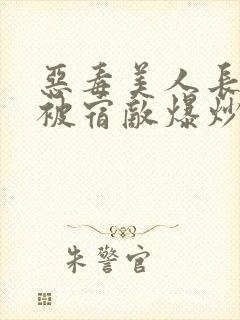 惡毒美人長
被宿敵爆炒
朱警官